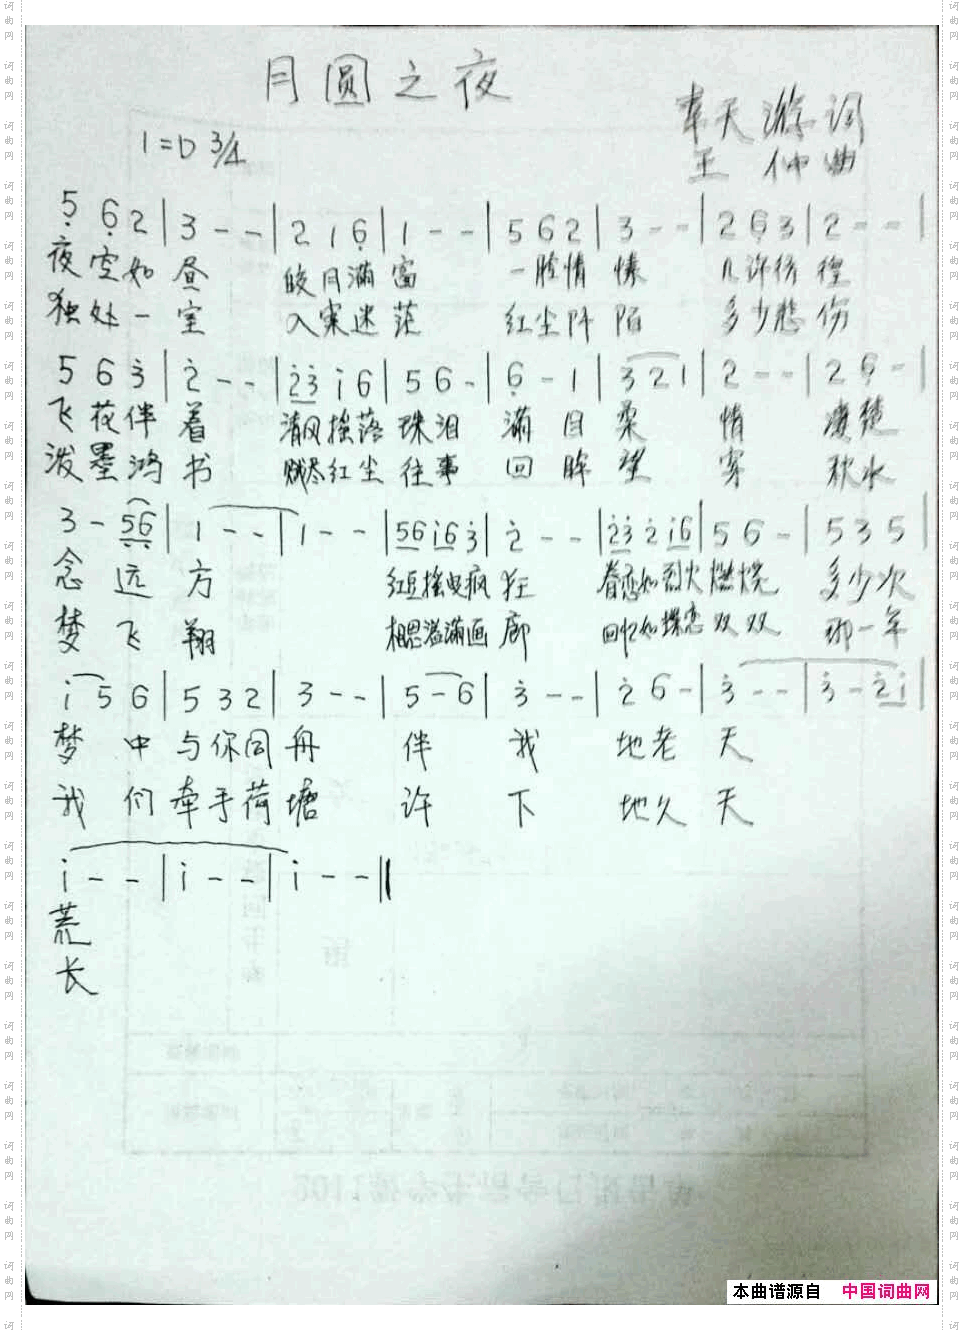 月圆之夜
奉天游词
1=D 3/4
王 仲曲
5 6 2 | 3 - - | 2 1 6 | 1 - - | 5 6 2 | 3 - - | 2 6 3 | 2 - - |
夜空如昼 皎月满窗 一腔情愫 几许彷徨
独处一室 入案迷茫 红尘阡陌 多少悲伤
5 6 3 | 2 - - | 23 i 6 | 5 6 - | 6 - 1 | 3 2 1 | 2 - - | 2 6 - |
飞花伴着 清风摇落 珠泪 满目柔情 凄楚
泼墨鸿书 贼尽红尘 往事 回眸望穿 秋水
3 - 56 | 1 - - | 1 - - | 56 i6 3 | 2 - - | 23 2 i6 | 5 6 - | 5 3 5 |
念远方 红豆摇曳疯狂 眷恋如烈火燃烧 多少次
梦飞翔 相思溢满画廊 回忆如蝶恋双双 那一年
i 5 6 | 5 3 2 | 3 - - | 5 - 6 | 3 - - | 2 6 - | 3 - - | 3 - 2i |
梦中与你同舟 伴我 地老天
我们牵手荷塘 许下 地久天
i - - | i - - | i - - ‖
荒
长
本曲谱源自 中国词曲网